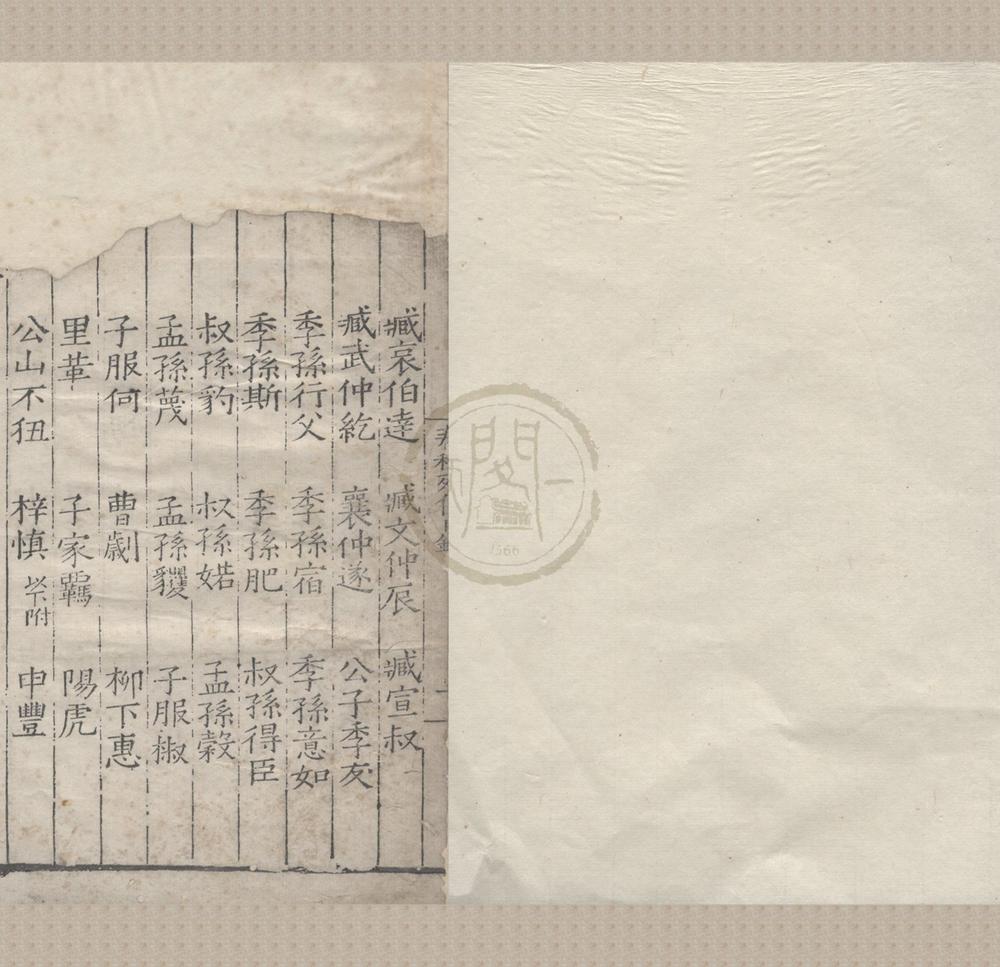 臧哀伯達 臧文仲辰 臧宣叔
臧武仲紇 襄仲遂 公子季友
季孫行父 季孫宿 季孫意如
季孫斯 季孫肥 叔孫得臣
叔孫豹 叔孫婼 孟孫穀
孟孫蔑 孟孫貜 子服椒
子服何 曹劌 柳下惠
里革 子家羈 陽虎
公山不狃 梓慎 附 申豐
閣
一
1566